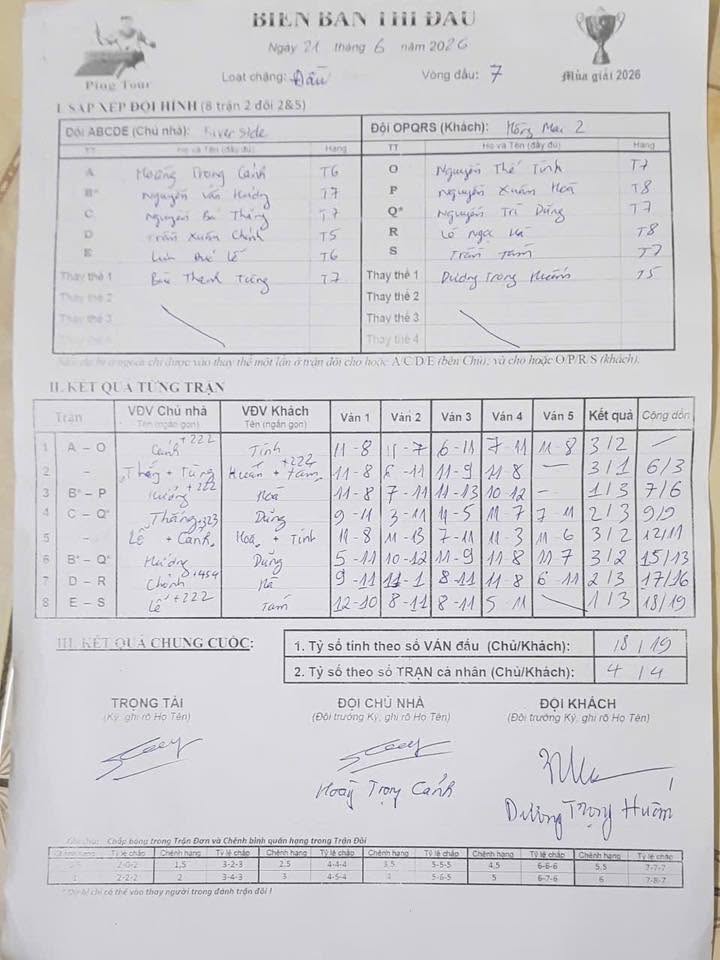 BIÊN BẢN THI ĐẤU
Ngày 21 tháng 6 năm 2026
Ping Tour
Loạt chặng: Đấu Vòng đấu: 7
Mùa giải 2026
I. SẮP XẾP ĐỘI HÌNH (8 trận 2 đôi 2&5)
Đội ABCDE (Chủ nhà): River Side Đội OPQRS (Khách): Hồng Mai 2
TT Họ và Tên (đầy đủ) Hạng TT Họ và Tên (đầy đủ) Hạng
A Hoàng Trọng Cảnh T6 O Nguyễn Thế Tính T7
B* Nguyễn Văn Hướng T7 P Nguyễn Xuân Hoà T8
C Nguyễn Bá Thắng T7 Q* Nguyễn Trí Dũng T7
D Trần Xuân Chỉnh T5 R Lê Ngọc Hà T8
E Đức Lễ T6 S Trần Tám T7
Thay thế 1 Bùi Thanh Tùng T7 Thay thế 1 Dương Trọng Huấn T5
Thay thế 2 Thay thế 2
Thay thế 3 Thay thế 3
Thay thế 4 Thay thế 4
chỉ được vào thay thế một lần ở trận đôi cho hoặc A/C/D/E (bên Chủ), và cho hoặc O/P/R/S (khách).
II. KẾT QUẢ TỪNG TRẬN
Trận VĐV Chủ nhà VĐV Khách Ván 1 Ván 2 Ván 3 Ván 4 Ván 5 Kết quả Cộng dồn
Tên (ngắn gọn) Tên (ngắn gọn)
1 A – O Cảnh +222 Tính 11-8 11-7 6-11 7-11 11-8 3/2 –
2 - Thắng + Tùng Huấn + Tám +222 11-8 6-11 11-9 11-8 – 3/1 6/3
3 B* – P Hướng +222 Hoà 11-8 7-11 11-13 10-12 - 1/3 7/6
4 C – Q* Thắng +323 Dũng 9-11 3-11 11-5 11-7 7-11 2/3 9/9
5 - Lễ + Cảnh Hoà + Tính 11-8 11-13 7-11 11-3 11-6 3/2 12/11
6 B* – Q* Hướng Dũng 5-11 10-12 11-9 11-8 11-7 3/2 15/13
7 D – R Chỉnh +454 Hà 9-11 11-1 8-11 11-8 6-11 2/3 17/16
8 E – S Lễ +222 Tám 12-10 8-11 8-11 5-11 1/3 18/19
III. KẾT QUẢ CHUNG CUỘC:
1. Tỷ số tính theo số VÁN đấu (Chủ/Khách): 18/19
2. Tỷ số theo số TRẬN cá nhân (Chủ/Khách): 4/4
TRỌNG TÀI ĐỘI CHỦ NHÀ ĐỘI KHÁCH
(Ký, ghi rõ Họ Tên) (Đội trưởng Ký, ghi rõ Họ Tên) (Đội trưởng Ký, ghi rõ Họ Tên)
Hoàng Trọng Cảnh
Dương Trọng Huấn
Ghi chú: Chấp bóng trong Trận Đơn và Chênh bình quân hạng trong Trận Đôi
Chênh hạng Tỷ lệ chấp Chênh hạng Tỷ lệ chấp Chênh hạng Tỷ lệ chấp Chênh hạng Tỷ lệ chấp Chênh hạng Tỷ lệ chấp Chênh hạng Tỷ lệ chấp
2-0-2 1,5 3-2-3 2,5 4-4-4 3,5 5-5-5 4,5 6-6-6 5,5 7-7-7
1 2-2-2 2 3-4-3 3 4-5-4 4 5-6-5 5 6-7-6 6 7-8-7
chỉ có thể vào thay người trong đánh trận đôi !